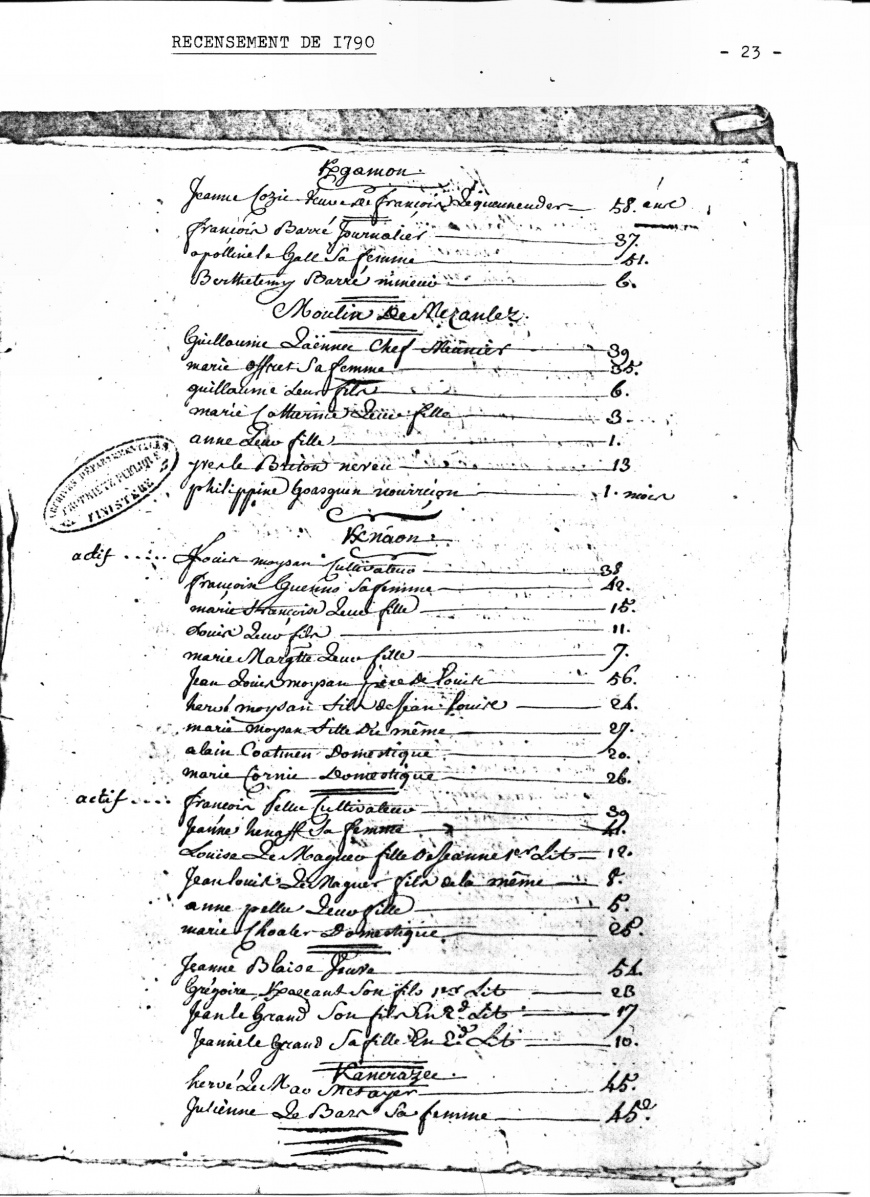 RECENSEMENT DE 1790
- 23 -
Kgamon
Jeanne Cozic veuve de françois Lequemender 58. ans
françois Barré Journalier 37.
apolline le Gall Sa femme 41.
Berthelemy Barré mineur 6.
Moulin De Mezanlez
Guillaume Laënnec Chef Meunier 39
marie offret Sa femme 35.
guillaume Leur fils 6.
marie Catherine Leur fille 3
anne Leur fille 1.
yves le Briton neveu 13
philippine Goasguen nourriçon 1. mois
ARCHIVES DÉPARTEMENTALES
PROPRIÉTÉ PUBLIQUE
FINISTÈRE
Knaon
actif Louis moysan Cultivateur 38
françoise Guenno Sa femme 42.
marie françoise Leur fille 15.
Louis Leur fils 11.
marie Margtte Leur fille 7.
Jean Louis moysan frère de Louis 56
hervé moysan fils De Jean Louis 24.
marie moysan fille Du même 27.
alain Coatmen Domestique 20.
marie Cornic Domestique 26.
actif françois pellu Cultivateur 39
Jeanne henaff Sa femme 41.
Louise Le Maguer fille De Jeanne 1er Lit 12.
Jean louis Le Maguer fils de la même 8.
anne pellu Leur fille 5.
marie Domestique 25.
Jeanne Blaise Veuve 54.
Grégoire Son fils 1er Lit 23
Jean le Grand Son fils En 2d. Lit 17
Jeanne le Grand Sa fille En 2d. Lit 10.
hervé Le Mao Metayer 45.
Julienne Le Bars Sa femme 45.